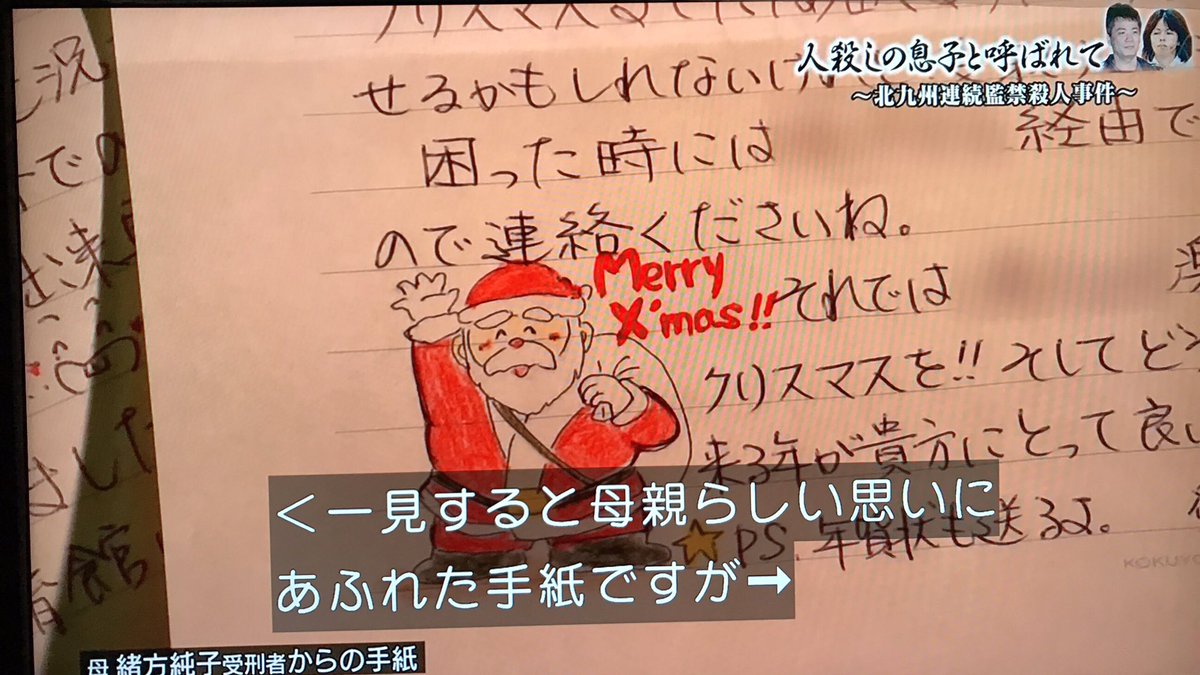 人殺しの息子と呼ばれて
～北九州連続監禁殺人事件～
せるかもしれないけ
困った時には 経由で
ので連絡くださいね。
Merry
X'mas!!
それでは
クリスマスを!! そしてど
来る年が貴方にとって良い
☆PS. 年賀状も送るよ。
KOKUYO
＜一見すると母親らしい思いに
あふれた手紙ですが➡
母 緒方純子受刑者からの手紙